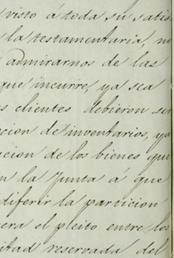 visto á toda su satis
la testamentaria, no
admirarnos de las
que incurre, ya sea
s clientes debieron ser
cion de inventarios, ya
acion de los bienes que
n la Junta á que
diferir la particion
era el pleito entre los
itad reservada del